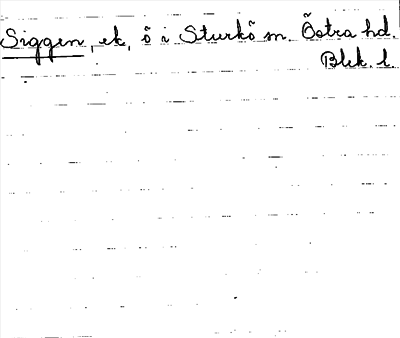 Siggen, ek, ö i Sturkö sn. Östra hd.
Blek. l.